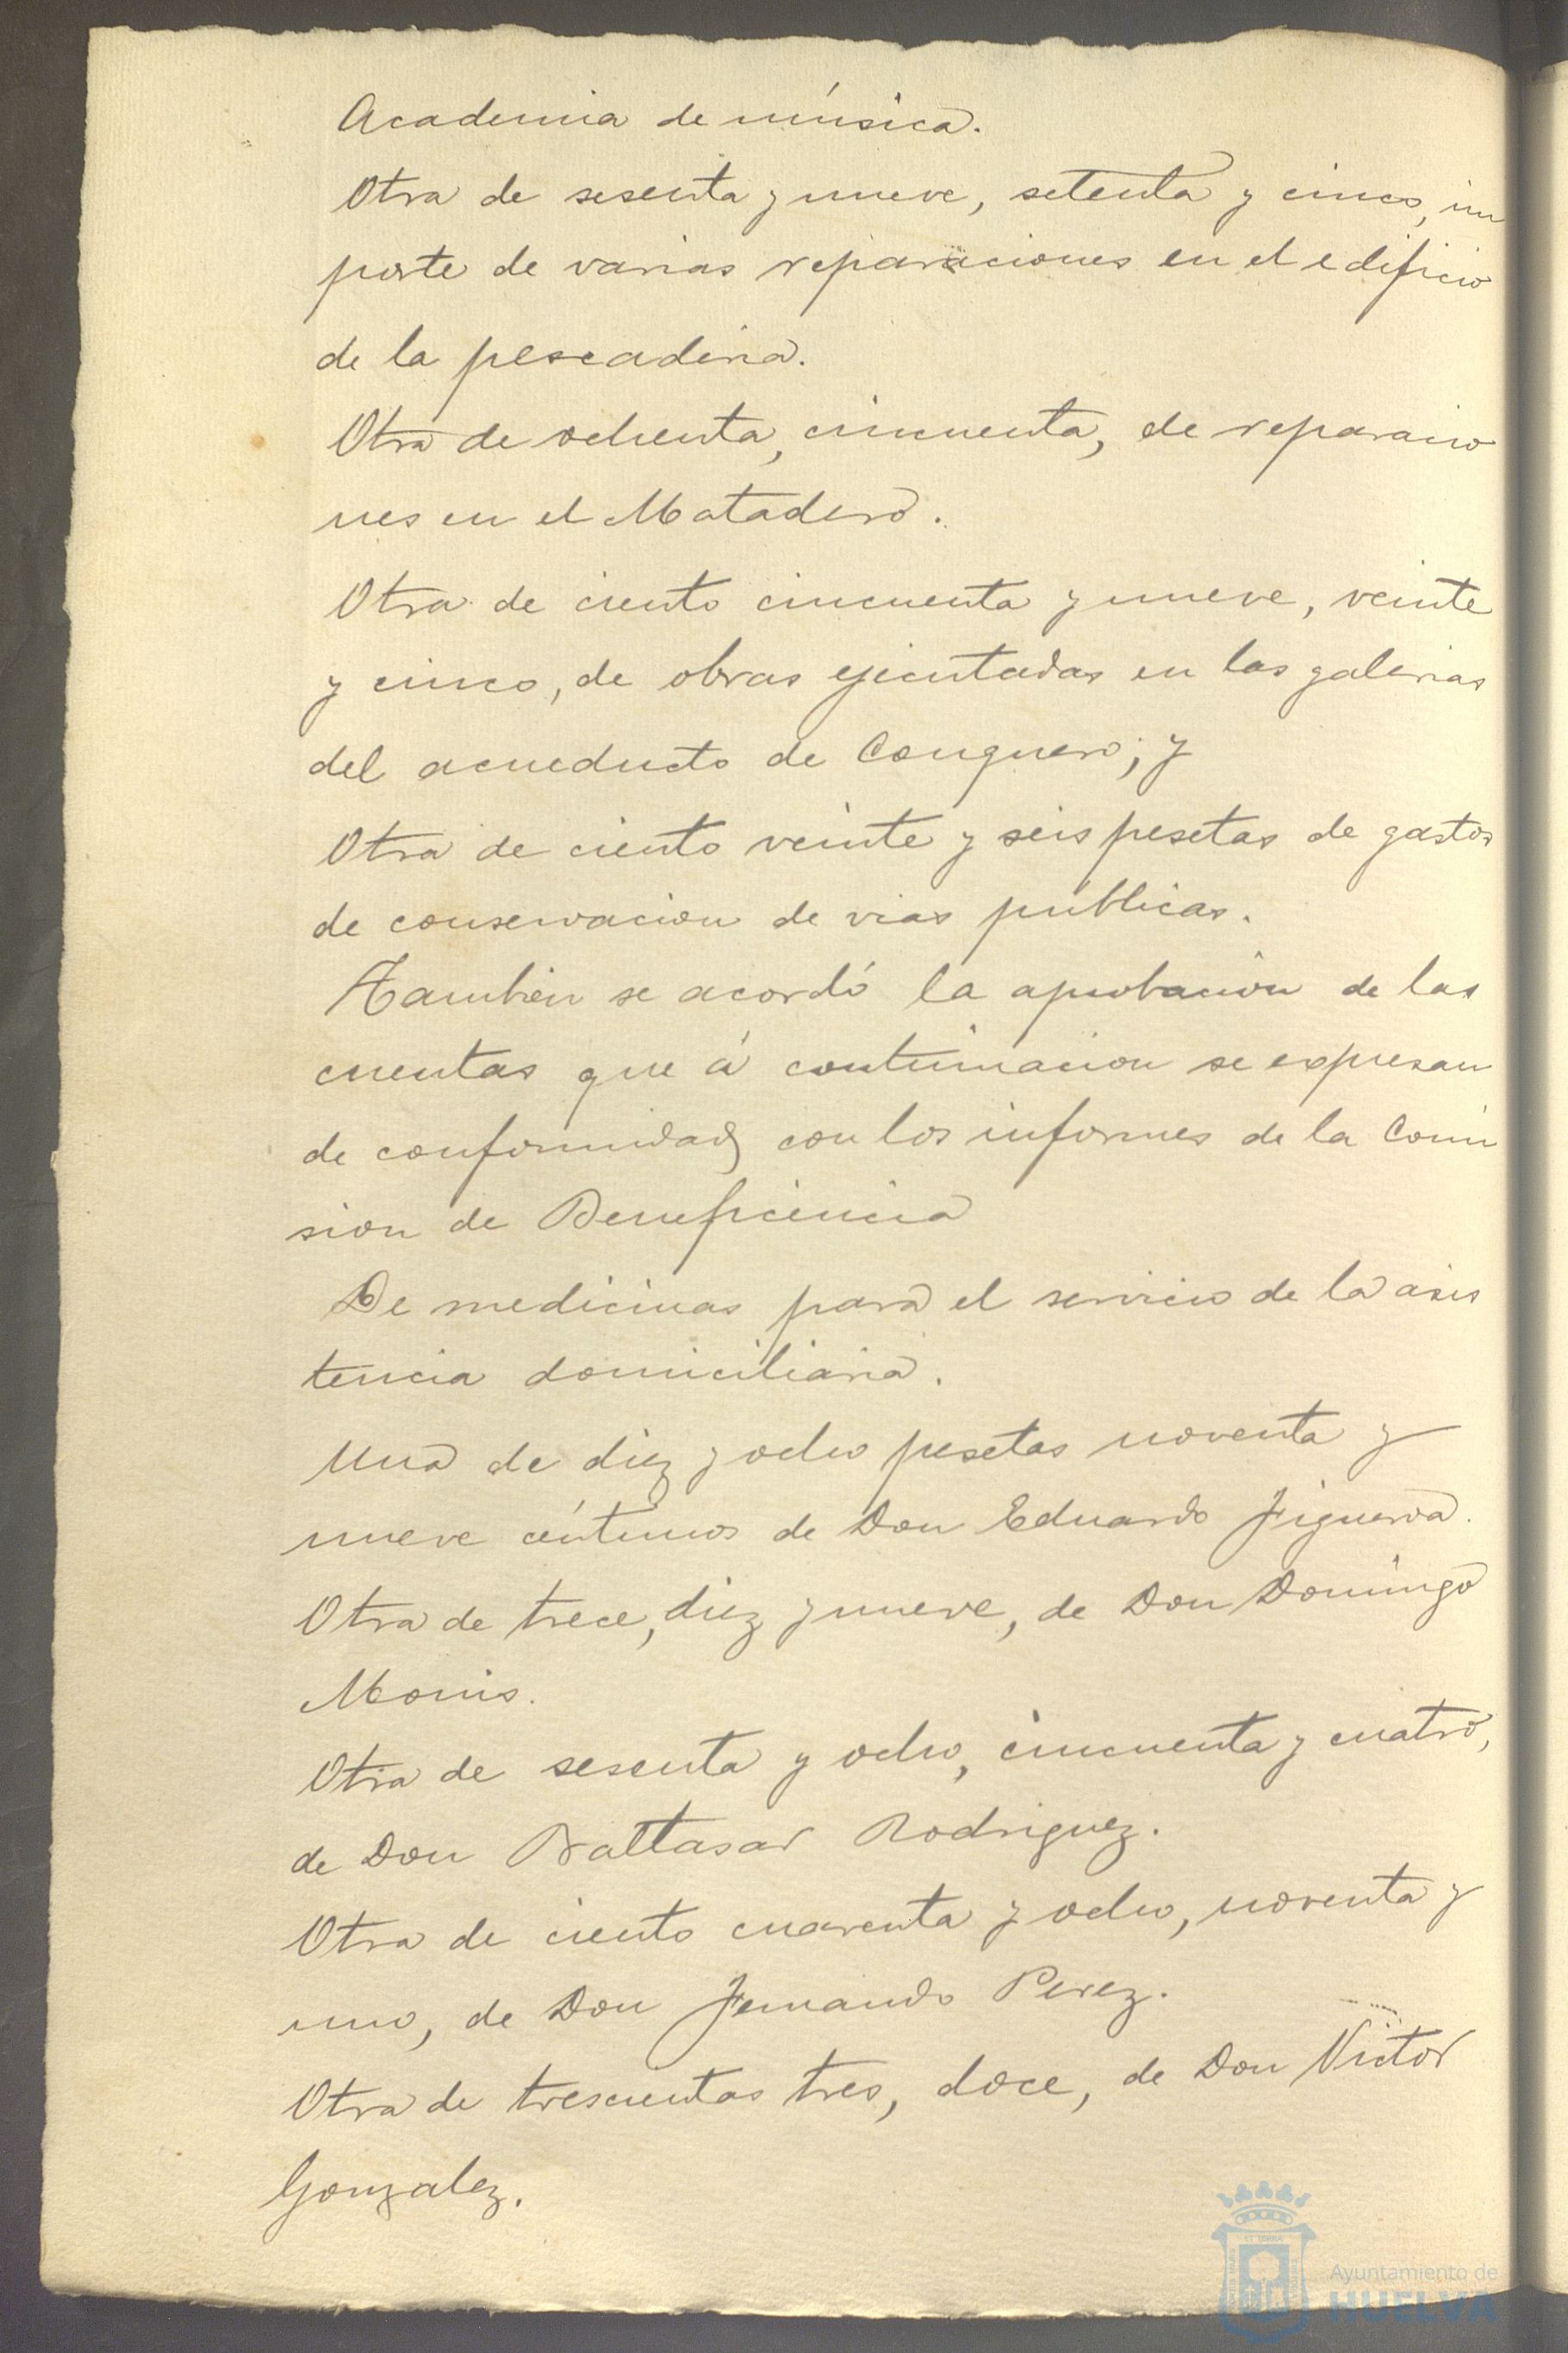 Academia de música.
Otra de sesenta y nueve, setenta y cinco, im
porte de varias reparaciones en el edificio
de la pescaderia.
Otra de ochenta, cincuenta, de reparacio
nes en el Matadero.
Otra de ciento cincuenta y nueve, veinte
y cinco, de obras ejecutadas en las galerias
del acueducto de Conquero; y
Otra de ciento veinte y seis pesetas de gastos
de conservacion de vias públicas.
Tambien se acordó la aprobación de las
cuentas que á continuacion se expresan
de conformidad con los informes de la Comi
sion de Beneficencia
De medicinas para el servicio de la asis
tencia domiciliaria.
Una de diez y ocho pesetas noventa y
nueve céntimos de Don Eduardo Figueroa.
Otra de trece, diez y nueve, de Don Domingo
Monis.
Otra de sesenta y ocho, cincuenta y cuatro,
de Don Baltasar Rodriguez.
Otra de ciento cuarenta y ocho, noventa y
uno, de Don Fernando Perez.
Otra de trescientas tres, doce, de Don Victor
Gonzalez.
Ayuntamiento de
HUELVA